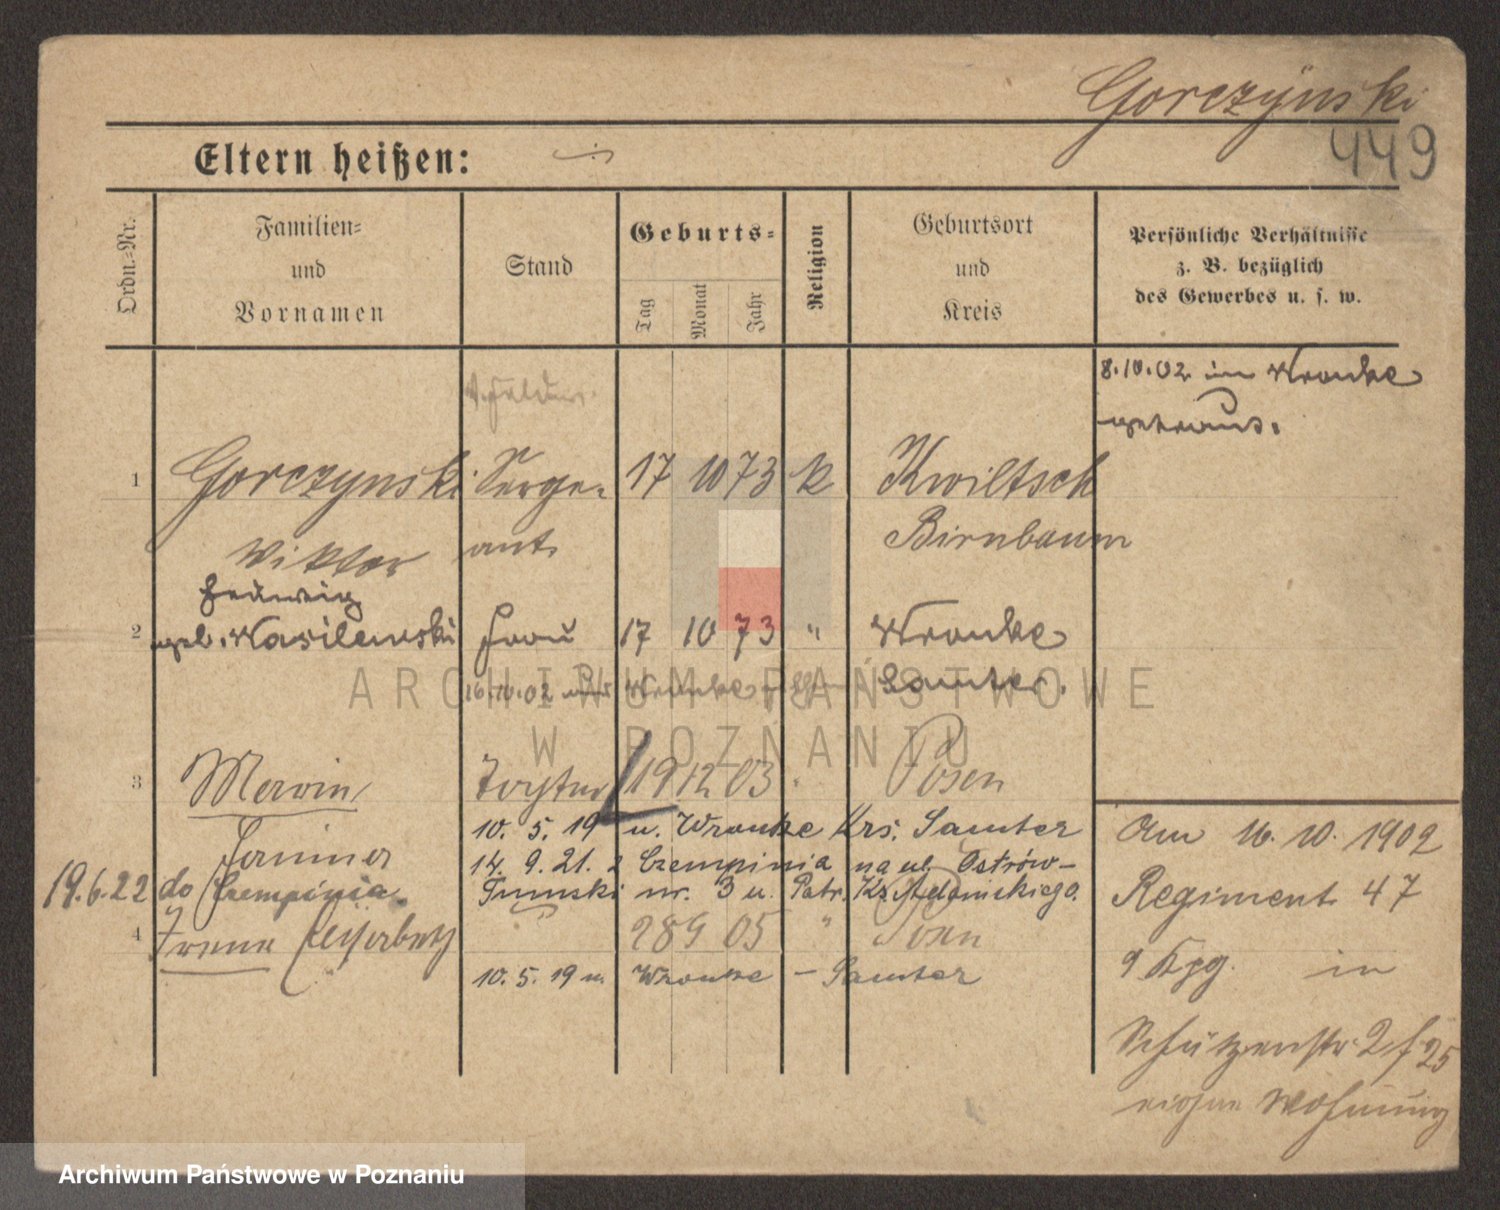 Gorczynski
449
Eltern heißen:
Ordn.-Nr.
Familien-
und
Vornamen
Stand
Geburts-
Tag
Monat
Jahr
Religion
Geburtsort
und
Kreis
Persönliche Verhältnisse
z. B. bezüglich
des Gewerbes u. s. w.
8.10.02 in Wronke
getraut.
1 Gorczynski Serge- 17 10 73 k Kwiltsch
Viktor ant Birnbaum
Hedwig
2 geb. Wasilewski Frau 17 10 73 " Wronke
16.10.02 Wronke Samter.
3 Marvin Tochter 19 12 03 Posen
10. 5. 19 n. Wronke Krs. Samter
14. 9. 21. z Czempinia na ul. Ostrów-
19.6.22 do Czempinia Tumski nr. 3 u. Patr. Ks. Adamskiego.
4 Irene 28 9 05 " Posen
10. 5. 19 n. Wronke - Samter
Am 16. 10. 1902
Regiment 47
9 Kpg. in
Schützenstr. 2 f 25
eigene Wohnung
ARCHIWUM PAŃSTWOWE
W POZNANIU
Archiwum Państwowe w Poznaniu